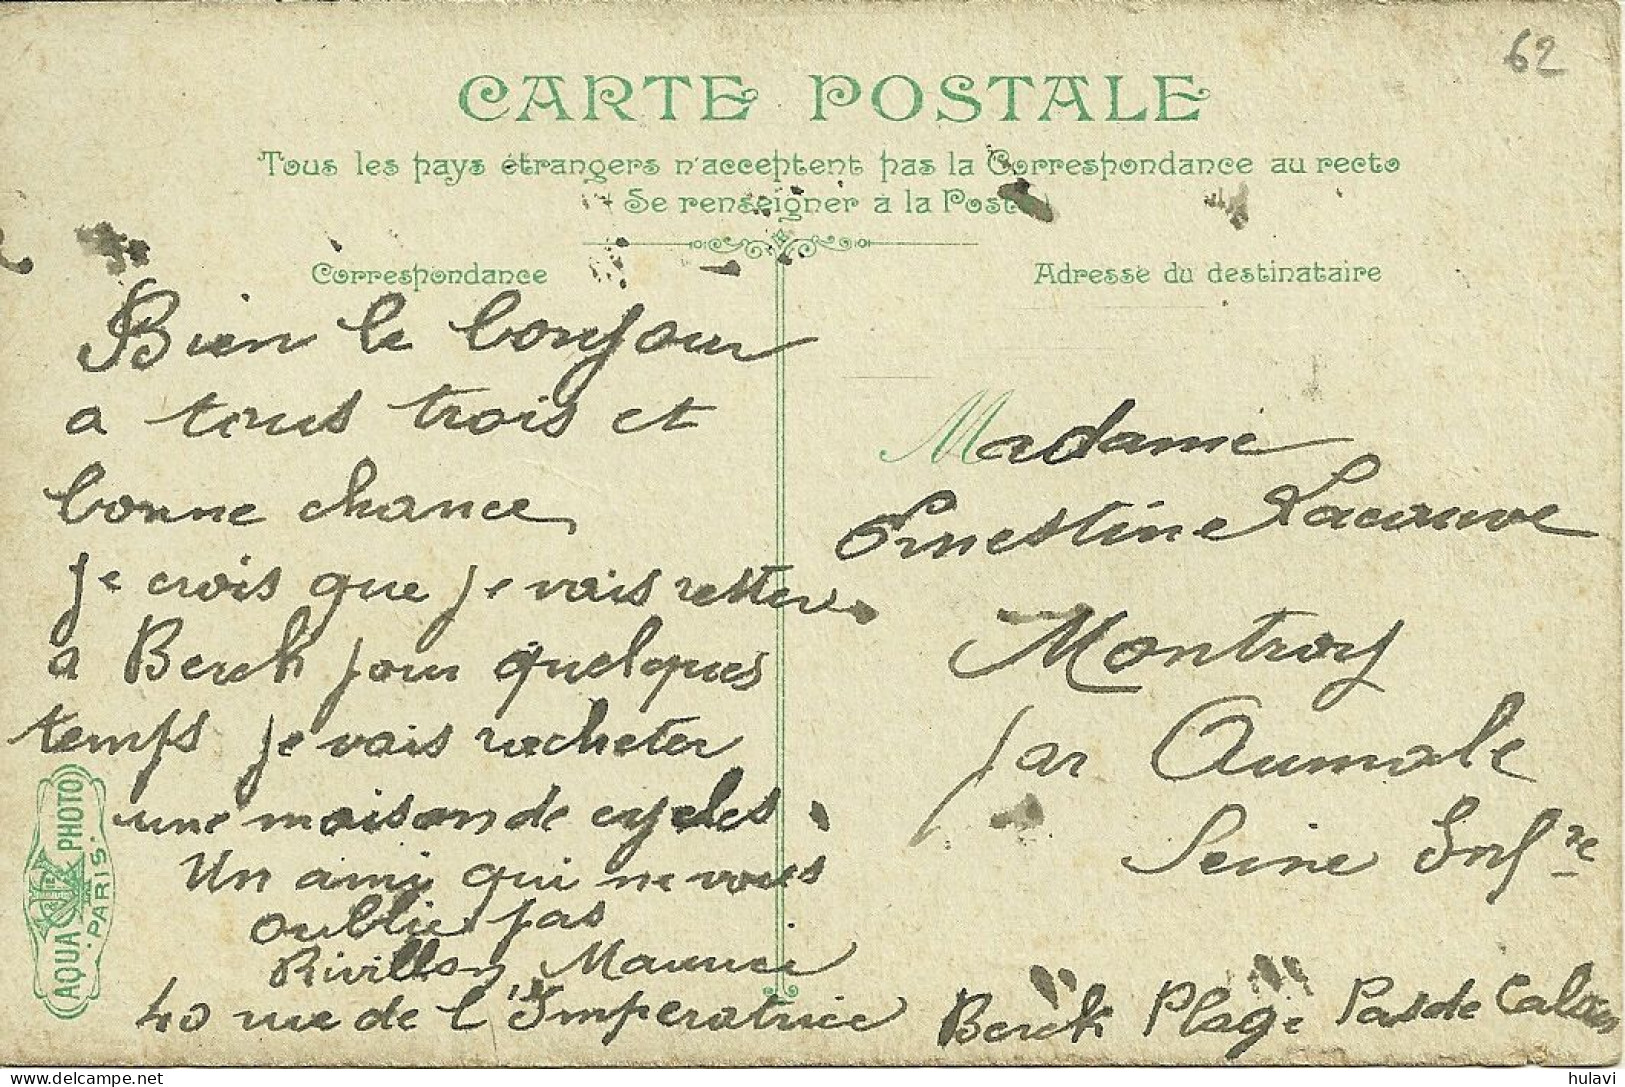 62
CARTE POSTALE
Tous les pays étrangers n'acceptent pas la Correspondance au recto
Se renseigner à la Poste
Correspondance
Bien le bonjour
a tous trois et
bonne chance
je crois que je vais rester
a Berck pour quelques
temps je vais racheter
une maison de cycles
Un ami qui ne vous
oublie pas
Rivillon Maurice
40 rue de l'Imperatrice Berck Plage Pas de Calais
Adresse du destinataire
Madame
Ernestine Lacauve
Montroy
par Aumale
Seine Infre
AQUA PHOTO
PARIS
hulavi